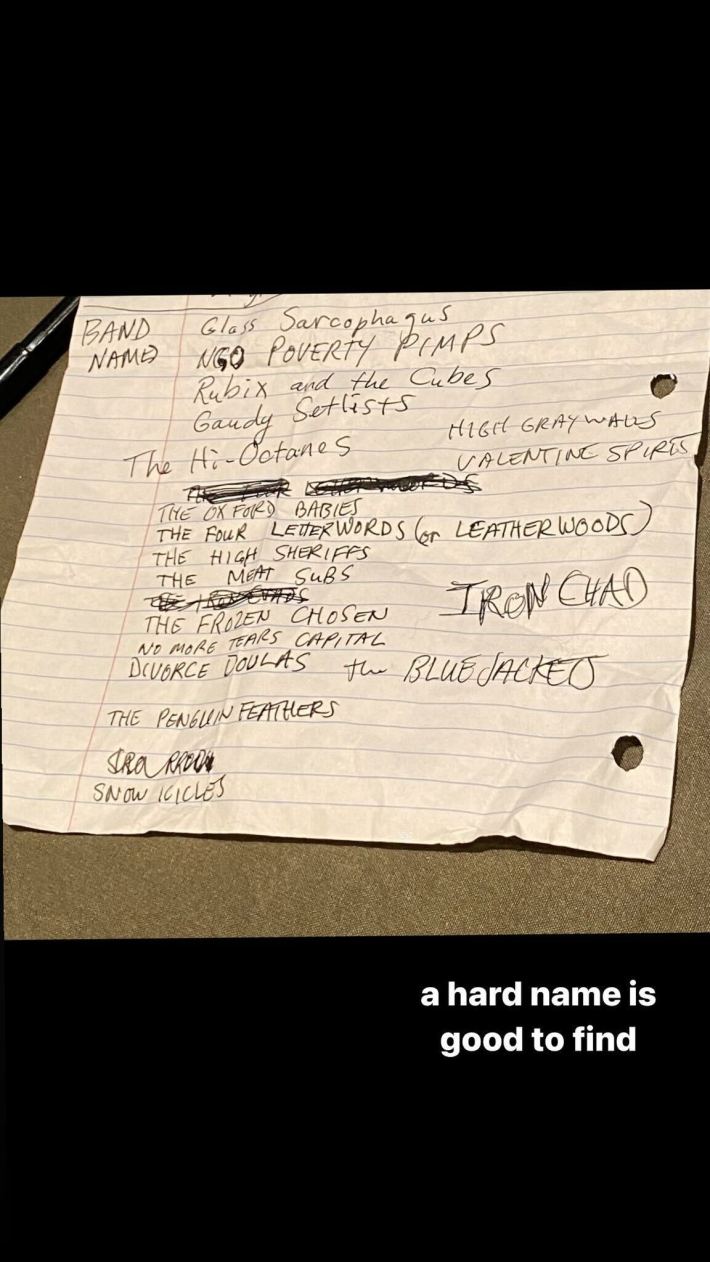 BAND
NAME
Glass Sarcophagus
NGO POVERTY PIMPS
Rubix and the Cubes
Gaudy Setlists
The Hi-Octanes
HIGH GRAY WALLS
VALENTINE SPIRITS
THE OXFORD BABIES
THE FOUR LETTERWORDS (or LEATHERWOODS)
THE HIGH SHERIFFS
THE MEAT SUBS
IRON CHAD
THE FROZEN CHOSEN
NO MORE TEARS CAPITAL
DIVORCE DOULAS
the BLUEJACKETS
THE PENGUIN FEATHERS
SNOW ICICLES
a hard name is
good to find